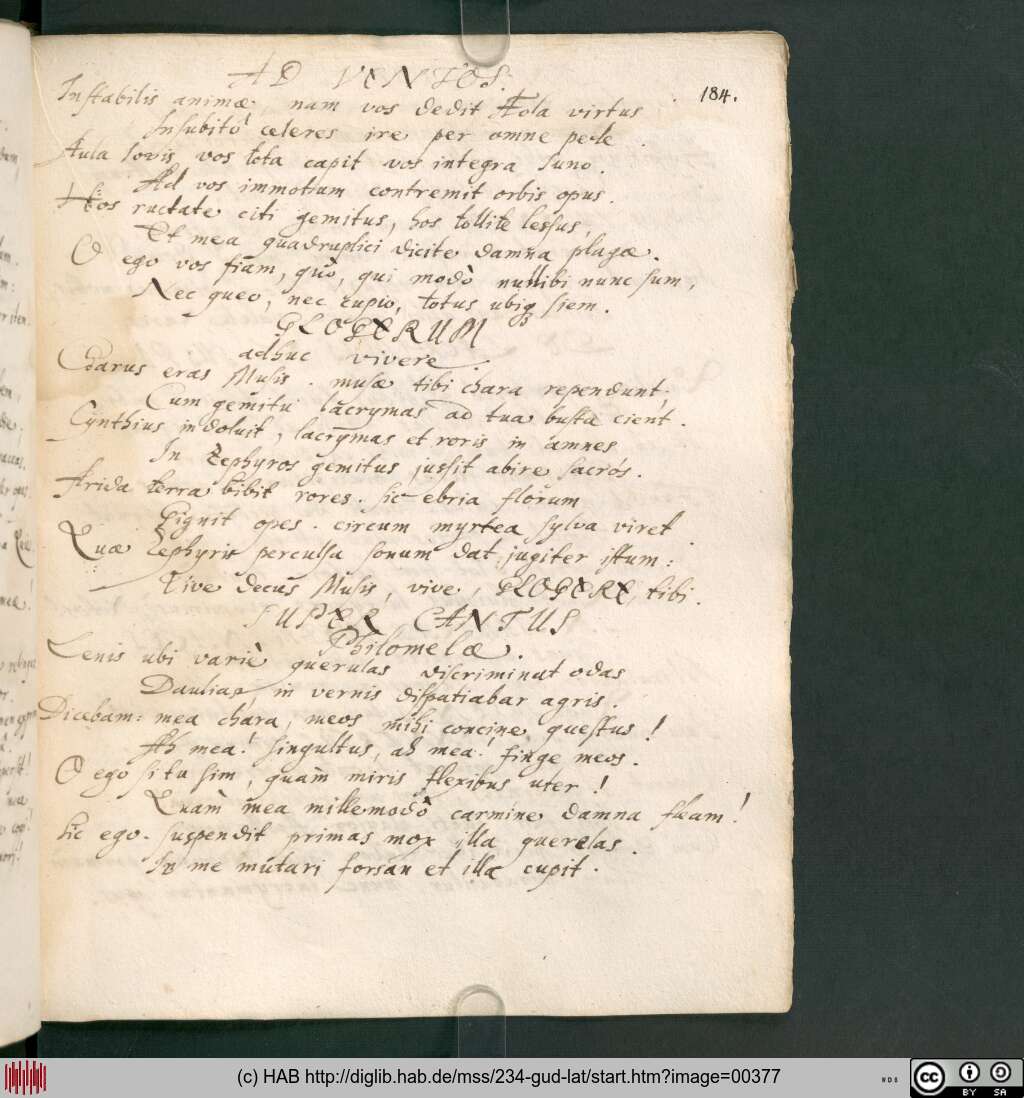 AD VENTOS.
184.
Instabilis animæ, nam vos dedit Æola virtus
Insubitò celeres ire per omne pede.
Aula Iovis vos tota capit vos integra Iuno.
Ad vos immotum contremit orbis opus.
Hos ructate citi gemitus, hos tollite lessus,
Et mea quadruplici dicite damna plagæ.
O ego vos fiam, quò, qui modò nullibi nunc sum,
Nec queo, nec cupio, totus ubiq; siem.
GLOGERUM
adhuc vivere.
Charus eras Musis. musæ tibi chara rependunt,
Cum gemitu lacrymas ad tua busta cient.
Cynthius indoluit, lacrymas et roris in amnes
In Zephyros gemitus jussit abire sacros.
Arida terra bibit rores. sic ebria florum
Gignit opes. circum myrtea sylva viret.
Quæ Zephyris perculsa sonum dat jugiter istum:
Vive decus Musis, vive, GLOGERE, tibi.
SUPER CANTUS
Philomelæ.
Lenis ubi variè querulas discriminat odas
Daulias, in vernis dispatiabar agris.
Dicebam: mea chara, meos mihi concine questus!
Ah mea! singultus, ah mea! finge meos.
O ego si tu sim, quam miris flexibus uter!
Quàm mea millemodò carmine damna fleam!
Sic ego. suspendit primas mox illa querelas.
In me mutari forsan et illa cupit.
(c) HAB http://diglib.hab.de/mss/234-gud-lat/start.htm?image=00377
cc BY SA